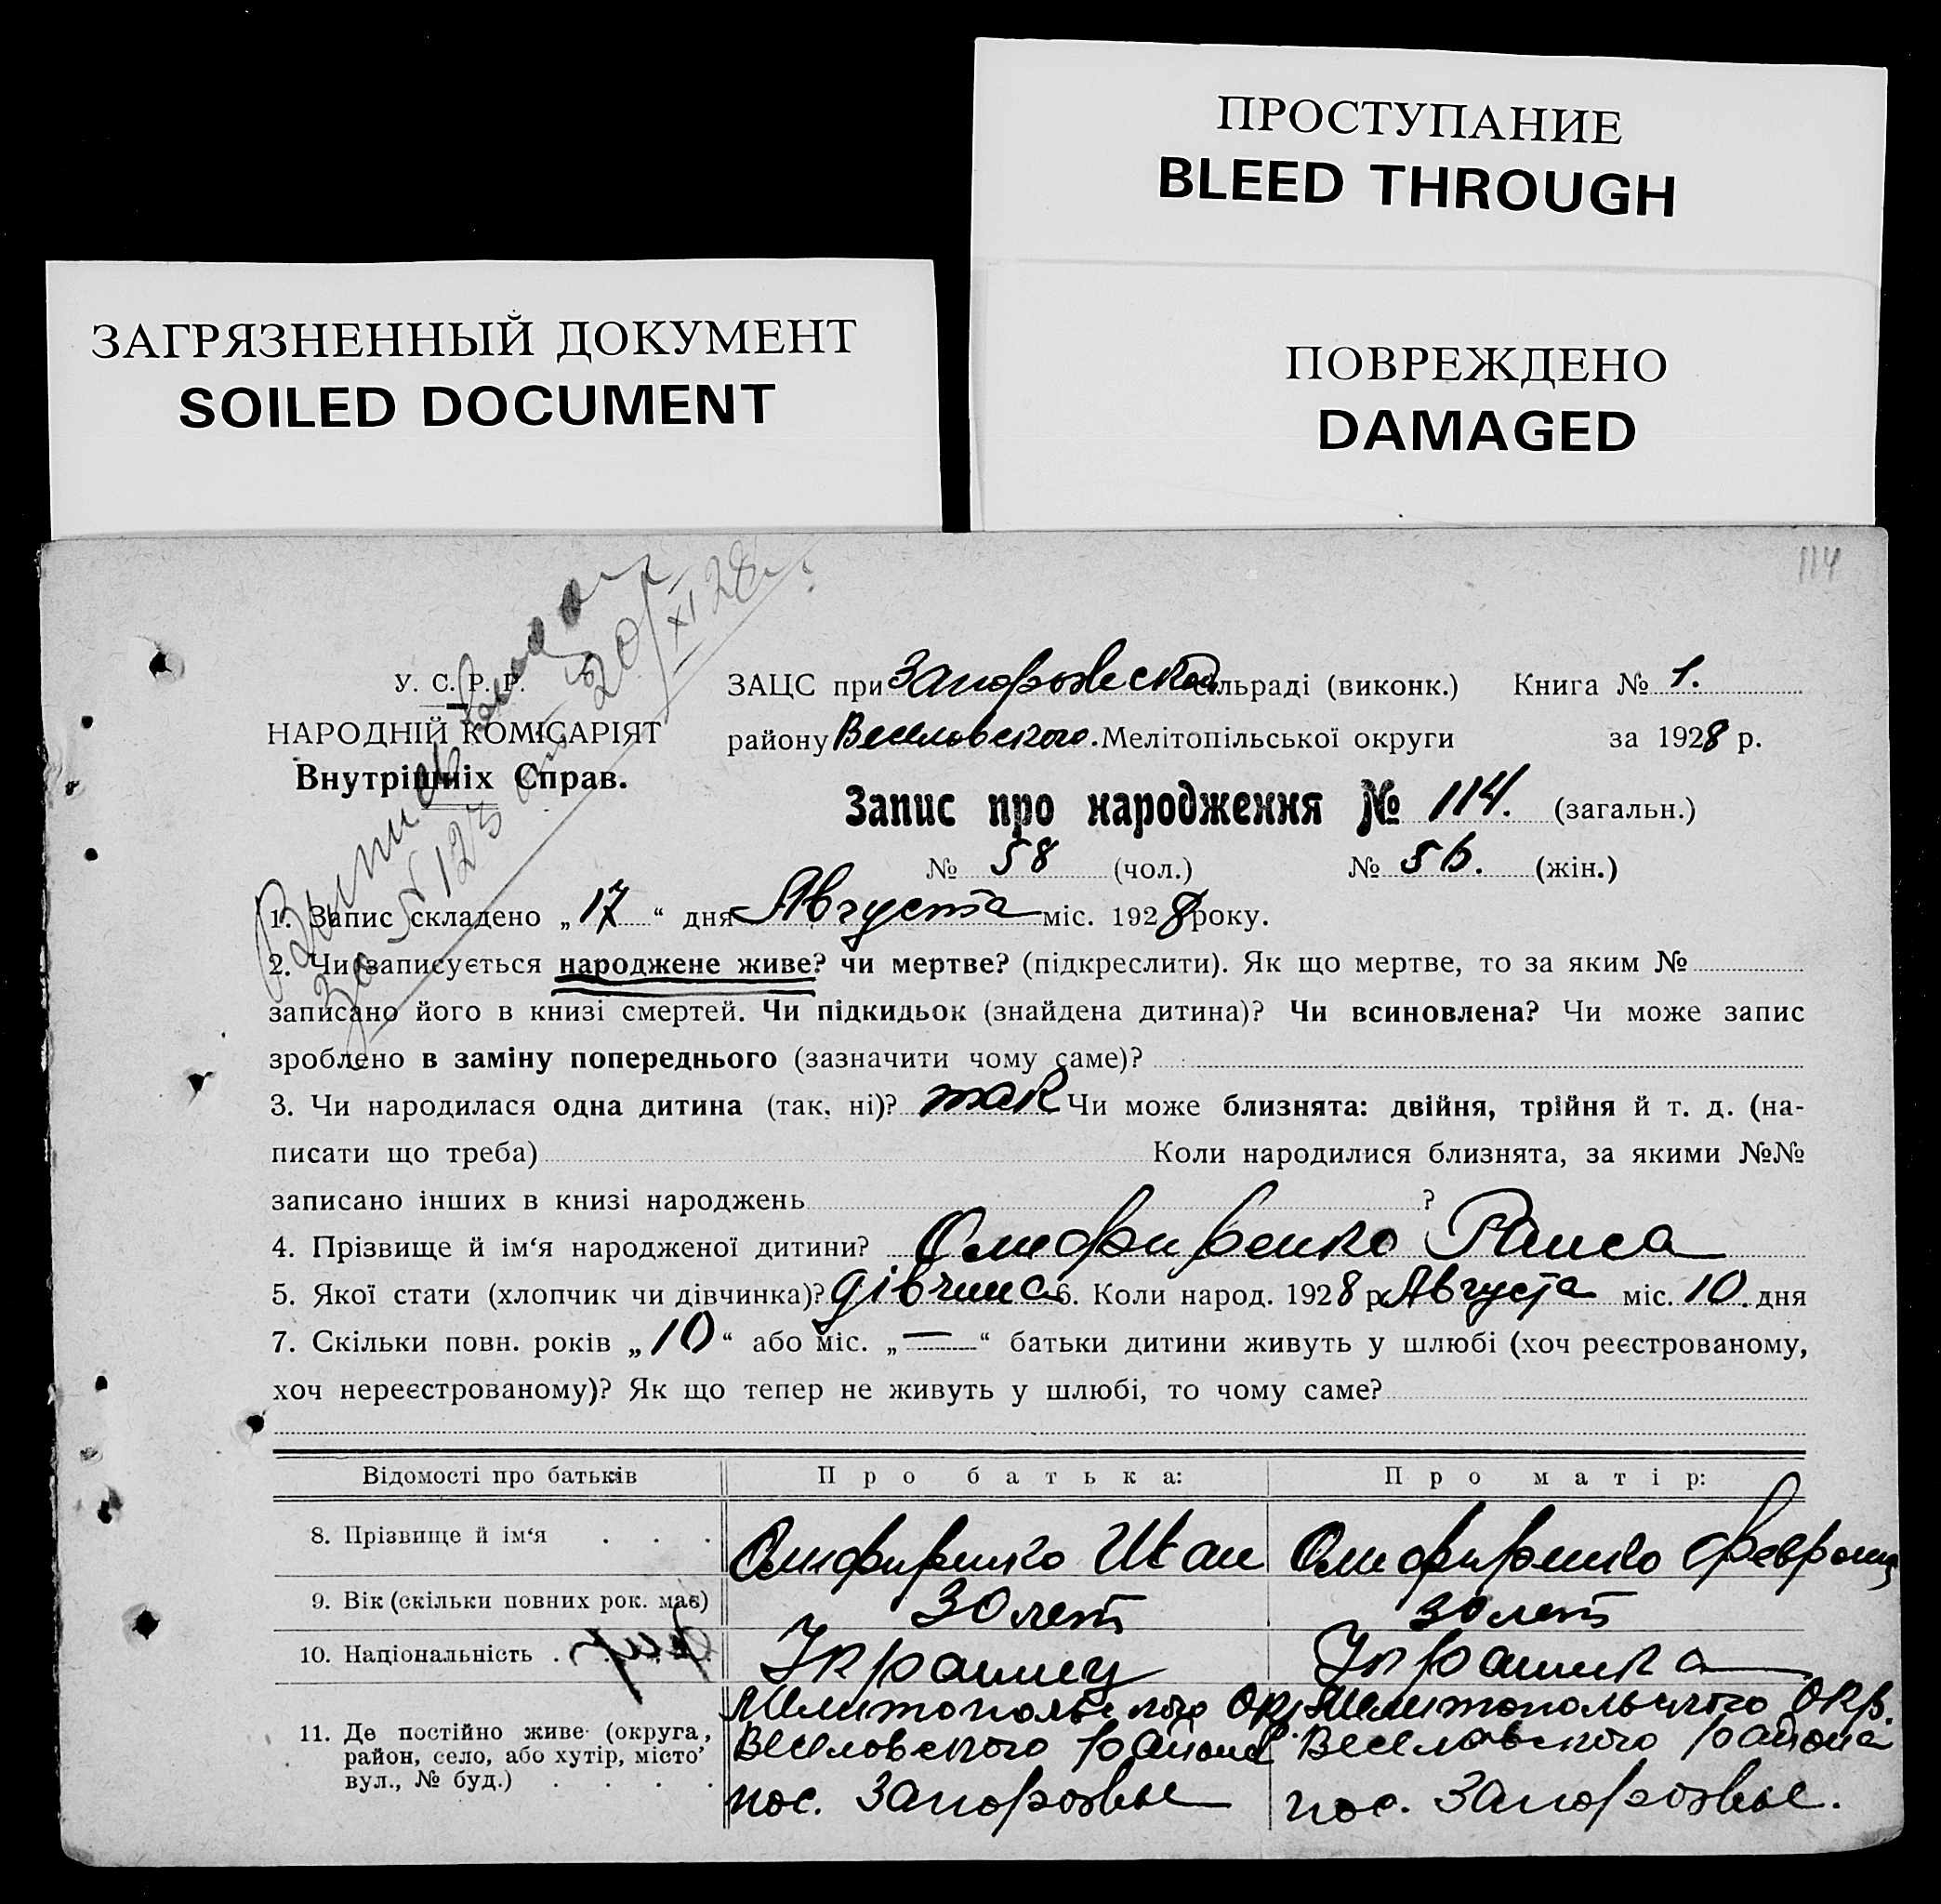 ПРОСТУПАНИЕ
BLEED THROUGH
ЗАГРЯЗНЕННЫЙ ДОКУМЕНТ
SOILED DOCUMENT
ПОВРЕЖДЕНО
DAMAGED
114
20/XI 28
У. С. Р. Р.
НАРОДНІЙ КОМІСАРІЯТ
Внутрішніх Справ.
ЗАЦС при Запорожской сільраді (виконк.) Книга № 1.
району Веселовского. Мелітопільської округи за 1928 р.
Запис про народження № 114. (загальн.)
№ 58 (чол.) № 56. (жін.)
1. Запис складено „17“ дня Августа міс. 1928 року.
2. Чи записується народжене живе? чи мертве? (підкреслити). Як що мертве, то за яким №
записано його в книзі смертей. Чи підкидьок (знайдена дитина)? Чи всиновлена? Чи може запис
зроблено в заміну попереднього (зазначити чому саме)?
3. Чи народилася одна дитина (так, ні)? так Чи може близнята: двійня, трійня й т. д. (на-
писати що треба) Коли народилися близнята, за якими №№
записано інших в книзі народжень ?
4. Прізвище й ім‘я народженої дитини? Олифиренко Раиса
5. Якої стати (хлопчик чи дівчинка)? дівчина 6. Коли народ. 1928 р. Августа міс. 10. дня
7. Скільки повн. років „10“ або міс. „—“ батьки дитини живуть у шлюбі (хоч реєстрованому,
хоч нереєстрованому)? Як що тепер не живуть у шлюбі, то чому саме?
Відомості про батьків Про батька: Про матір:
8. Прізвище й ім‘я . . . Олифиренко Иван Олифиренко
9. Вік (скільки повних рок. має) 30 лет 30 лет
10. Національність . Украинец Украинка
11. Де постійно живе (округа, район, село, або хутір, місто, вул., № буд.) . . . .
Мелитопольского Окр. Мелитопольского Окр.
Веселовского района Веселовского района
пос. Запорожье пос. Запорожье.